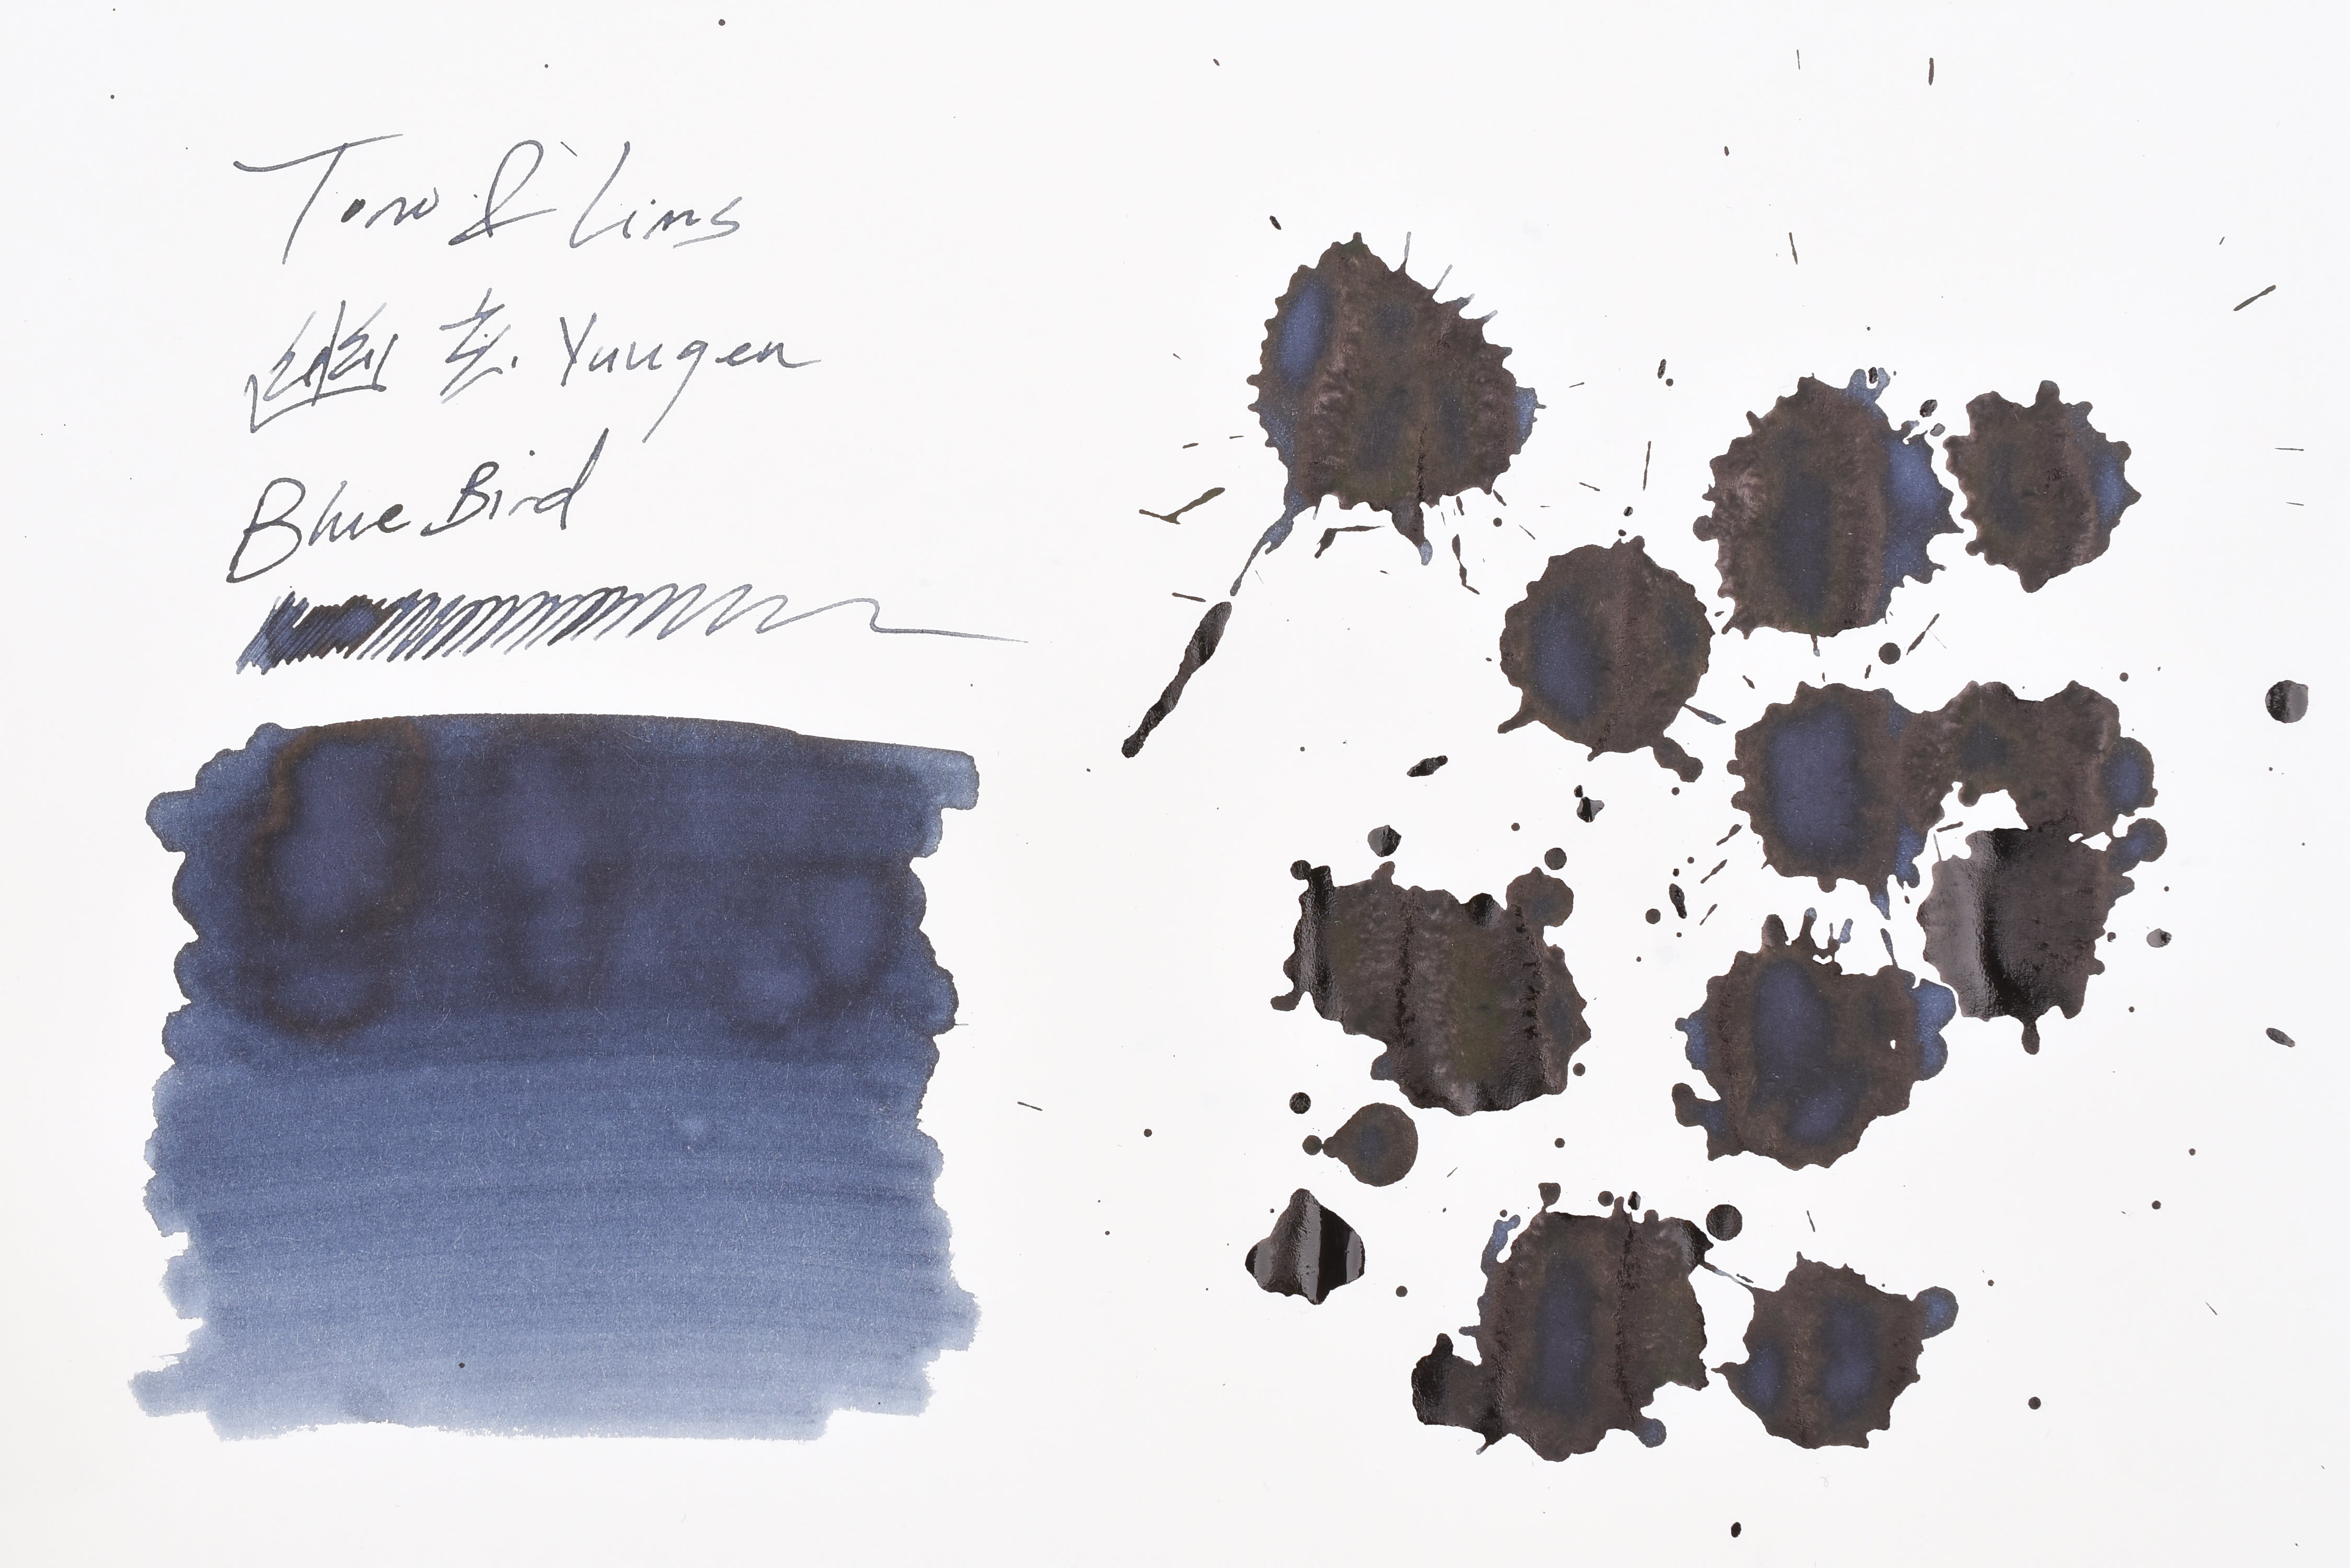 Tono & Lims
幽玄 Yuugen
Blue Bird